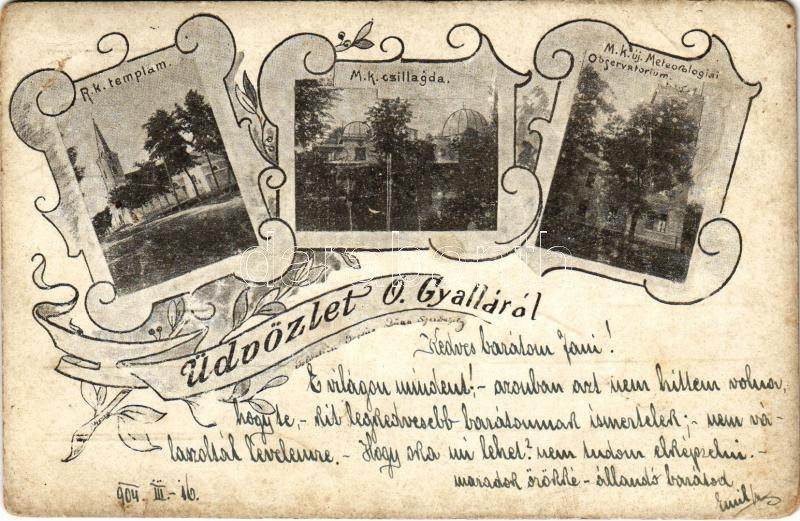 R.k. templam.
M.k. csillagda.
M.k. új. Meteorologiai
Observatorium.
Üdvözlet Ó. Gyalláról
Kedves barátom Jani!
E világon mindent! - azonban azt nem hittem volna,
hogy te, - kit legkedvesebb barátomnak ismertelek; - nem vá-
laszoltál levelemre. - Hogy oka mi lehet? nem tudom elképzelni. -
maradok örökké - állandó barátod
904. III. - 16.
Emil
darabanth